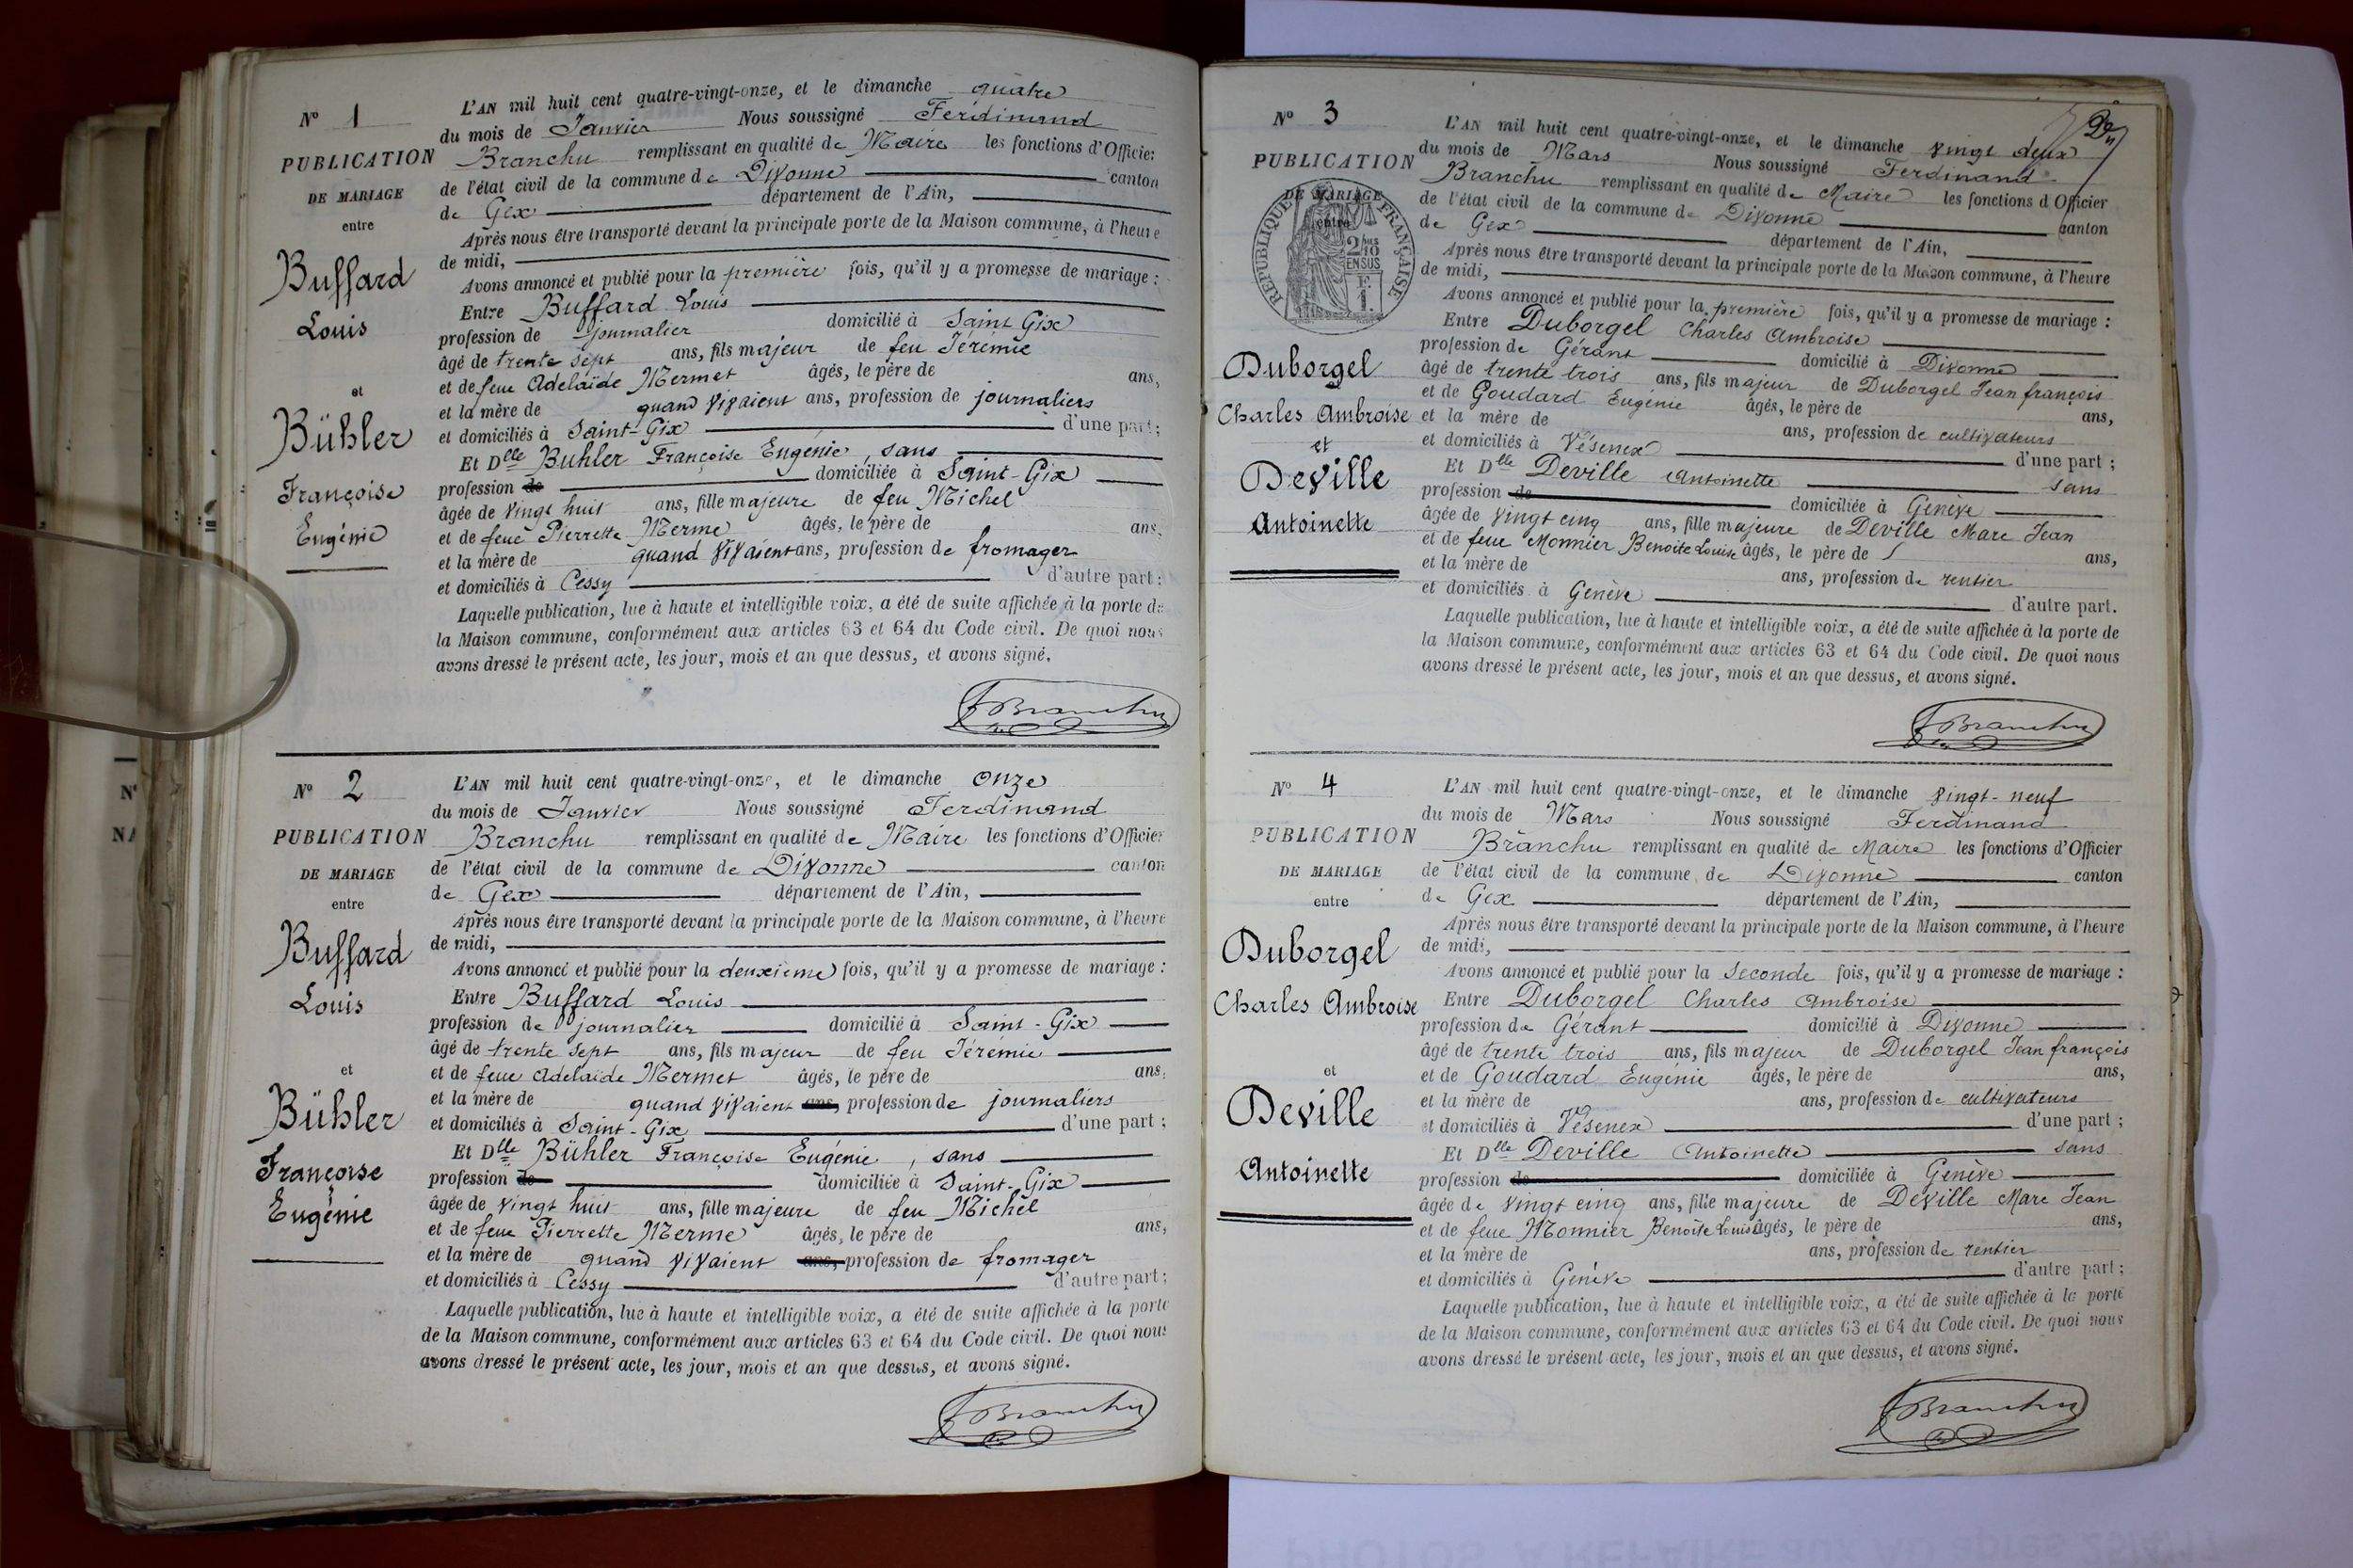 N° 1
PUBLICATION
DE MARIAGE
entre
Buffard
Louis
et
Bühler
Françoise
Eugénie
L'AN mil huit cent quatre-vingt-onze, et le dimanche quatre
du mois de Janvier Nous soussigné Ferdinand
Branchu remplissant en qualité de Maire les fonctions d'Officier
de l'état civil de la commune de Divonne canton
de Gex département de l'Ain,
Après nous être transporté devant la principale porte de la Maison commune, à l'heure
de midi,
Avons annoncé et publié pour la première fois, qu'il y a promesse de mariage :
Entre Buffard Louis
profession de journalier domicilié à Saint Gix
âgé de trente sept ans, fils majeur de feu Jérémie
et de feue Adelaïde Mermet âgés, le père de ans,
et la mère de quand vivaient ans, profession de journaliers
et domiciliés à Saint-Gix d'une part ;
Et Dlle Buhler Françoise Eugénie, sans
profession de domiciliée à Saint-Gix
âgée de vingt huit ans, fille majeure de feu Michel
et de feue Pierrette Merme âgés, le père de ans,
et la mère de quand vivaient ans, profession de fromager
et domiciliés à Cessy d'autre part ;
Laquelle publication, lue à haute et intelligible voix, a été de suite affichée à la porte de
la Maison commune, conformément aux articles 63 et 64 du Code civil. De quoi nous
avons dressé le présent acte, les jour, mois et an que dessus, et avons signé.
F Branchu
N° 2
PUBLICATION
DE MARIAGE
entre
Buffard
Louis
et
Bühler
Françoise
Eugénie
L'AN mil huit cent quatre-vingt-onze, et le dimanche onze
du mois de Janvier Nous soussigné Ferdinand
Branchu remplissant en qualité de Maire les fonctions d'Officier
de l'état civil de la commune de Divonne canton
de Gex département de l'Ain,
Après nous être transporté devant la principale porte de la Maison commune, à l'heure
de midi,
Avons annoncé et publié pour la deuxième fois, qu'il y a promesse de mariage :
Entre Buffard Louis
profession de journalier domicilié à Saint-Gix
âgé de trente sept ans, fils majeur de feu Jérémie
et de feue Adelaïde Mermet âgés, le père de ans,
et la mère de quand vivaient ans, profession de journaliers
et domiciliés à Saint-Gix d'une part ;
Et Dlle Bühler Françoise Eugénie, sans
profession de domiciliée à Saint-Gix
âgée de vingt huit ans, fille majeure de feu Michel
et de feue Pierrette Merme âgés, le père de ans,
et la mère de quand vivaient ans, profession de fromager
et domiciliés à Cessy d'autre part ;
Laquelle publication, lue à haute et intelligible voix, a été de suite affichée à la porte
de la Maison commune, conformément aux articles 63 et 64 du Code civil. De quoi nous
avons dressé le présent acte, les jour, mois et an que dessus, et avons signé.
F Branchu
N° 3
PUBLICATION
DE MARIAGE
entre
RÉPUBLIQUE FRANÇAISE
Duborgel
Charles Ambroise
et
Deville
Antoinette
L'AN mil huit cent quatre-vingt-onze, et le dimanche vingt deux
du mois de Mars Nous soussigné Ferdinand
Branchu remplissant en qualité de Maire les fonctions d'Officier
de l'état civil de la commune de Divonne canton
de Gex département de l'Ain,
Après nous être transporté devant la principale porte de la Maison commune, à l'heure
de midi,
Avons annoncé et publié pour la première fois, qu'il y a promesse de mariage :
Entre Duborgel Charles Ambroise
profession de Gérant domicilié à Divonne
âgé de trente trois ans, fils majeur de Duborgel Jean françois
et de Goudard Eugénie âgés, le père de ans,
et la mère de ans, profession de cultivateurs
et domiciliés à Vésenex d'une part ;
Et Dlle Deville Antoinette sans
profession de domiciliée à Genève
âgée de vingt cinq ans, fille majeure de Deville Marc Jean
et de feue Monnier Benoite Louise âgés, le père de ans,
et la mère de ans, profession de rentier
et domiciliés à Genève d'autre part.
Laquelle publication, lue à haute et intelligible voix, a été de suite affichée à la porte de
la Maison commune, conformément aux articles 63 et 64 du Code civil. De quoi nous
avons dressé le présent acte, les jour, mois et an que dessus, et avons signé.
F Branchu
N° 4
PUBLICATION
DE MARIAGE
entre
Duborgel
Charles Ambroise
et
Deville
Antoinette
L'AN mil huit cent quatre-vingt-onze, et le dimanche vingt-neuf
du mois de Mars Nous soussigné Ferdinand
Branchu remplissant en qualité de Maire les fonctions d'Officier
de l'état civil de la commune de Divonne canton
de Gex département de l'Ain,
Après nous être transporté devant la principale porte de la Maison commune, à l'heure
de midi,
Avons annoncé et publié pour la seconde fois, qu'il y a promesse de mariage :
Entre Duborgel Charles Ambroise
profession de Gérant domicilié à Divonne
âgé de trente trois ans, fils majeur de Duborgel Jean françois
et de Goudard Eugénie âgés, le père de ans,
et la mère de ans, profession de cultivateurs
et domiciliés à Vésenex d'une part ;
Et Dlle Deville Antoinette sans
profession de domiciliée à Genève
âgée de vingt cinq ans, fille majeure de Deville Marc Jean
et de feue Monnier Benoîte Louise âgés, le père de ans,
et la mère de ans, profession de rentier
et domiciliés à Genève d'autre part ;
Laquelle publication, lue à haute et intelligible voix, a été de suite affichée à la porte
de la Maison commune, conformément aux articles 63 et 64 du Code civil. De quoi nous
avons dressé le présent acte, les jour, mois et an que dessus, et avons signé.
F Branchu